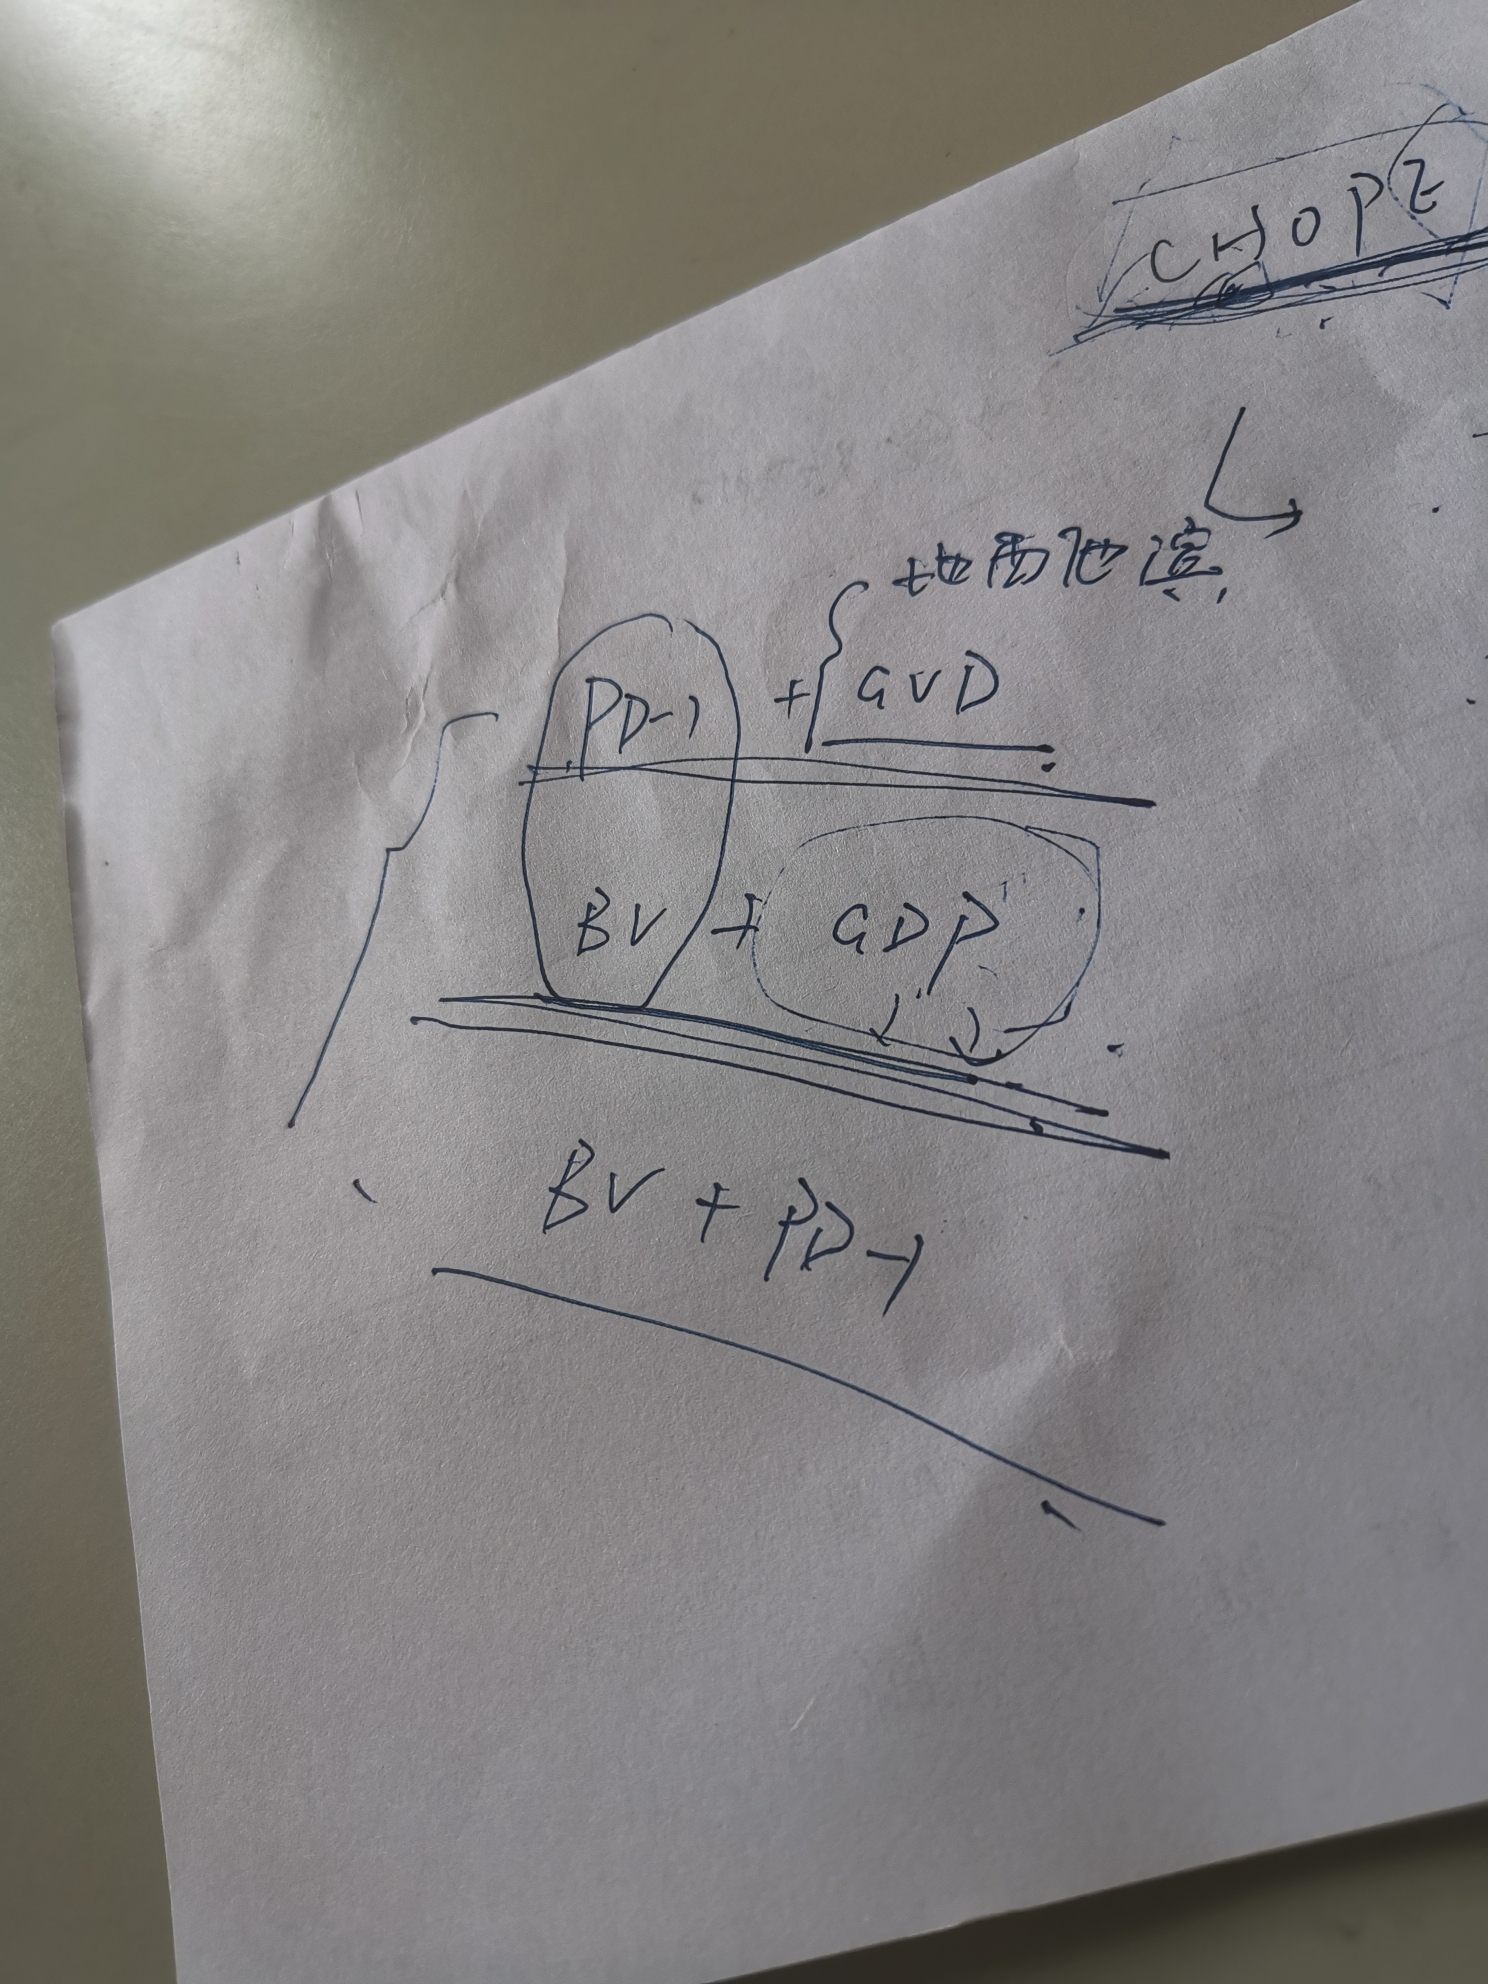 CHOPE
地西他滨
PD-1 + { GVD
BV + GDP
BV + PD-1